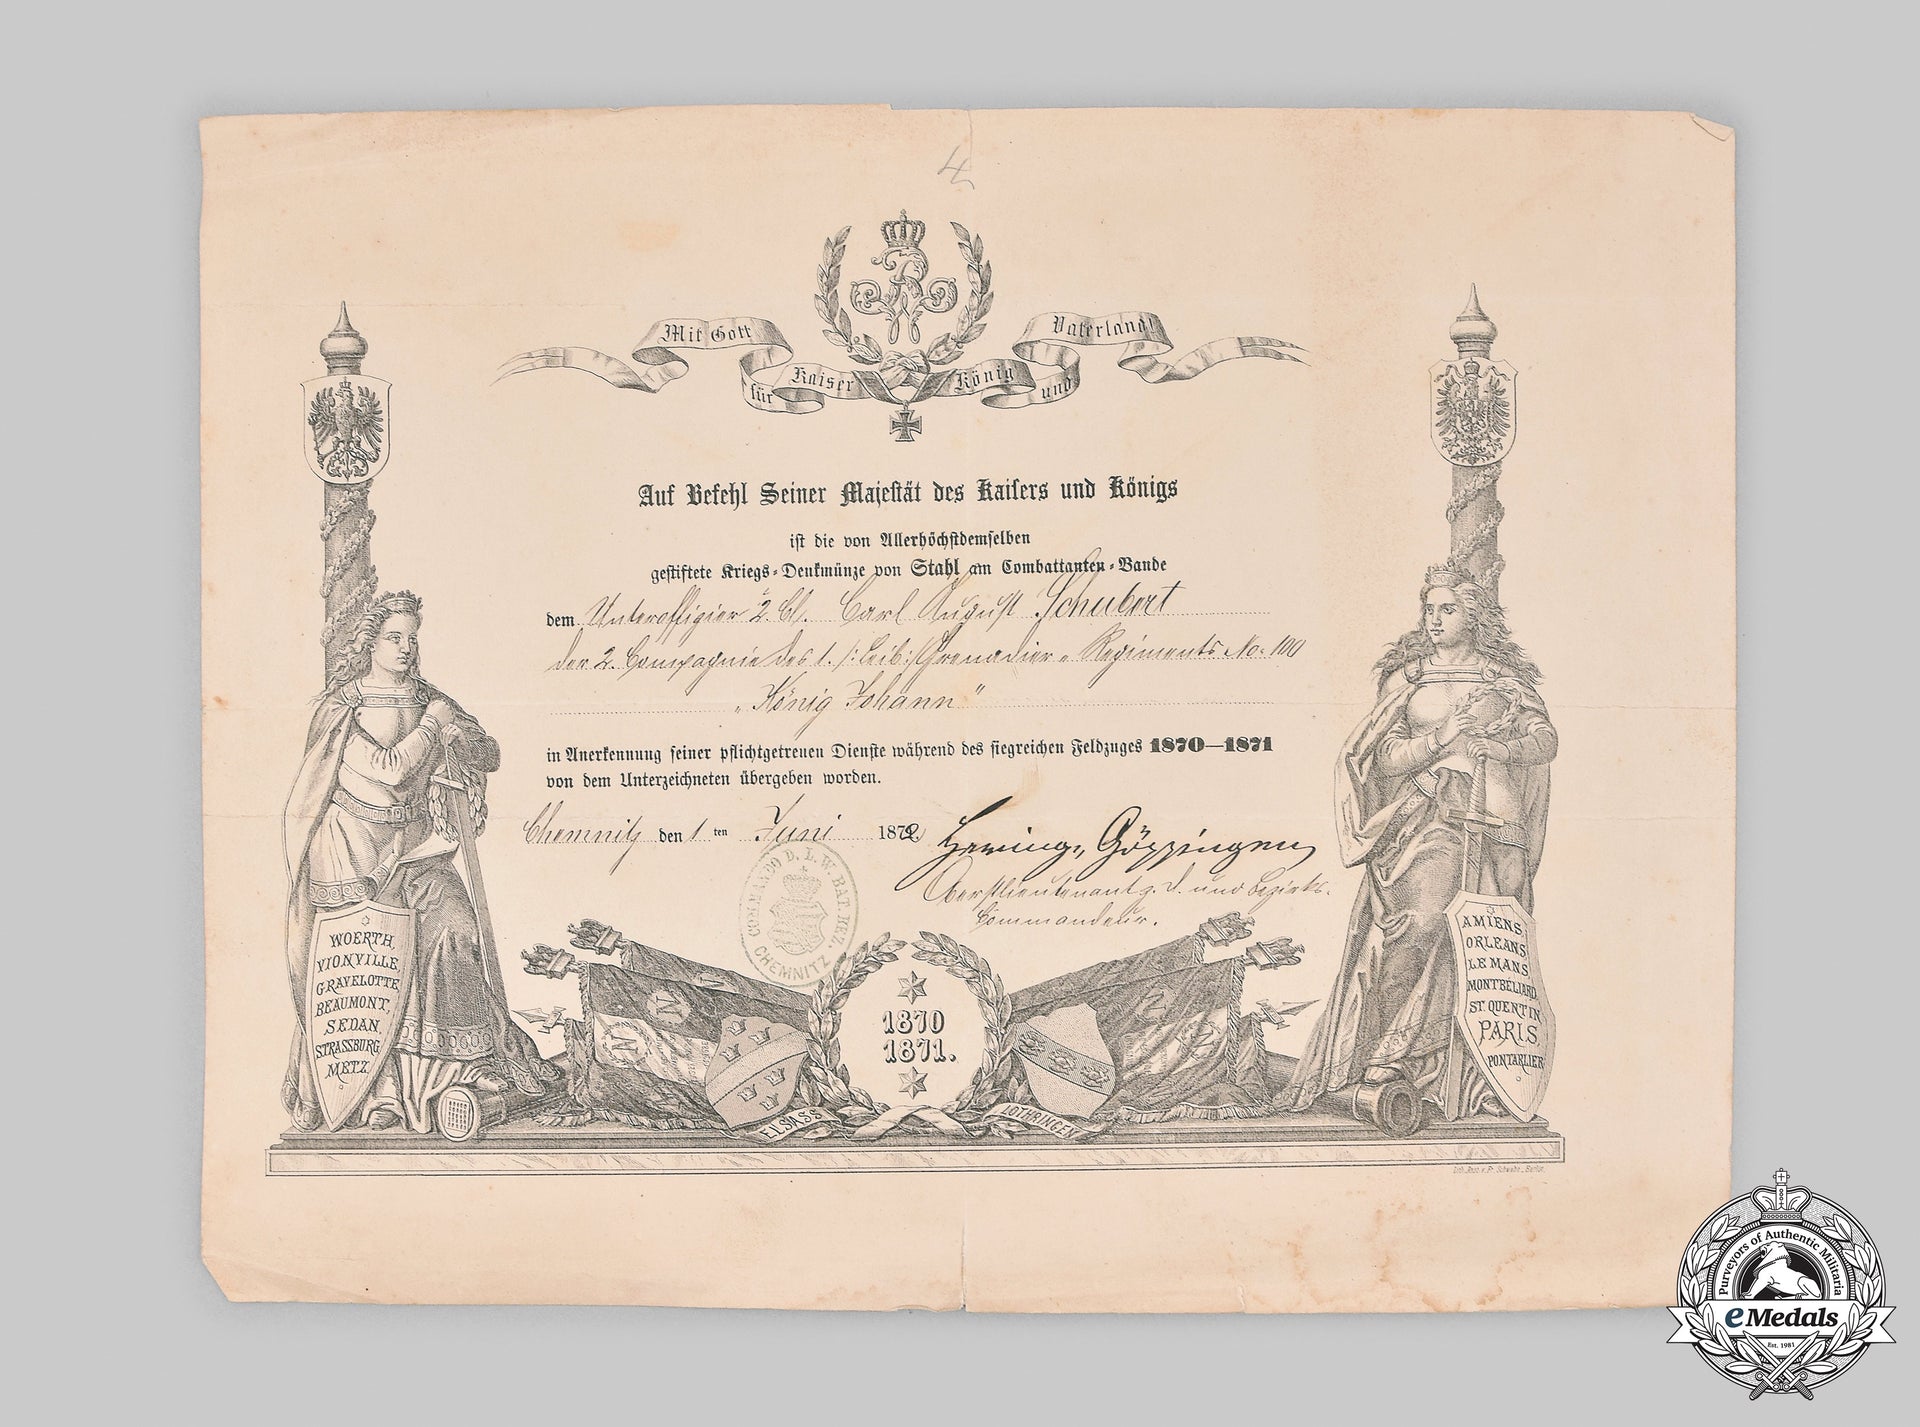 4
Mit Gott
für
Kaiser
König
und
Vaterland!
Auf Befehl Seiner Majestät des Kaisers und Königs
ist die von Allerhöchstdemselben
gestiftete Kriegs-Denkmünze von Stahl am Combattanten-Bande
dem Unteroffizier 2. Cl. Carl August Schubert
der 2. Compagnie des 1. /:Leib:/ Grenadier-Regiments No. 100
„König Johann"
in Anerkennung seiner pflichtgetreuen Dienste während des siegreichen Feldzuges 1870—1871
von dem Unterzeichneten übergeben worden.
Chemnitz den 1ten Juni 1872.
Göppingen
Oberstlieutenant z. D. und Bezirks-
Commandeur.
COMMANDO D. L. W. BAT. BEZ.
CHEMNITZ
WOERTH,
VIONVILLE,
GRAVELOTTE
BEAUMONT,
SEDAN,
STRASSBURG
METZ.
1870
1871.
ELSASS
LOTHRINGEN
AMIENS,
ORLEANS,
LE MANS,
MONTBÉLIARD,
ST. QUENTIN
PARIS,
PONTARLIER
Purveyors of Authentic Militaria
eMedals
Est. 1981